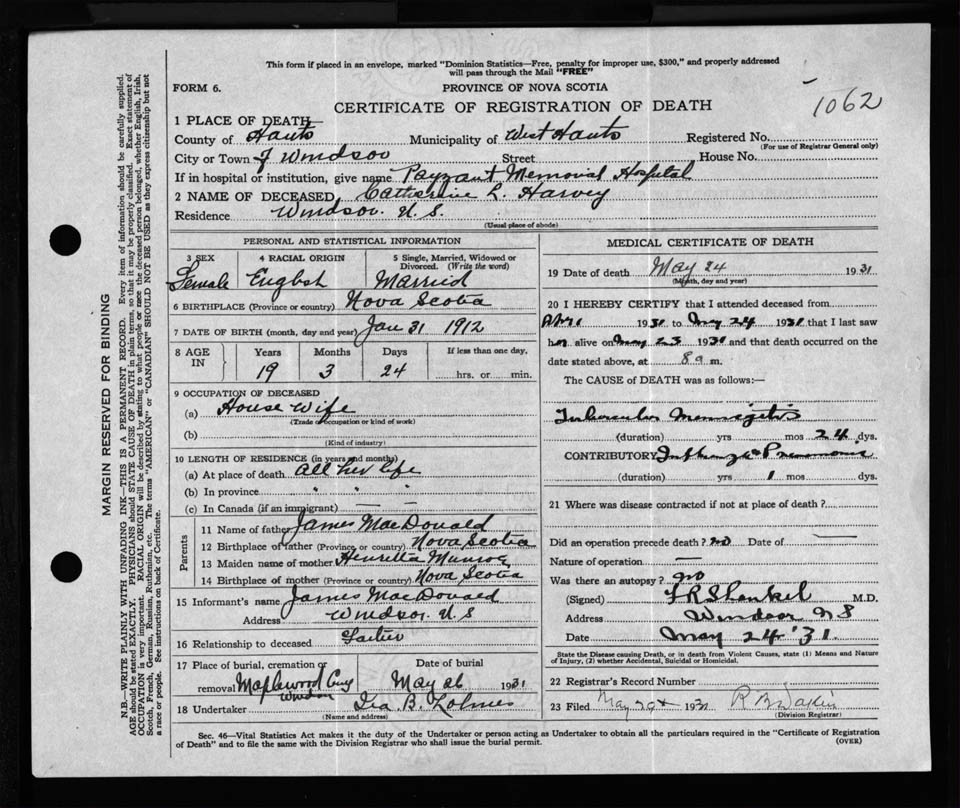 This form if placed in an envelope, marked "Dominion Statistics—Free, penalty for improper use, $300," and properly addressed
will pass through the Mail "FREE"
FORM 6.
PROVINCE OF NOVA SCOTIA
1062
CERTIFICATE OF REGISTRATION OF DEATH
1 PLACE OF DEATH—
County of Hants Municipality of West Hants Registered No.
(For use of Registrar General only)
City or Town of Windsor Street House No.
If in hospital or institution, give name Payzant Memorial Hospital
2 NAME OF DECEASED Catherine L. Harvey
Residence Windsor. N. S.
(Usual place of abode)
PERSONAL AND STATISTICAL INFORMATION
3 SEX 4 RACIAL ORIGIN 5 Single, Married, Widowed or
Divorced. (Write the word)
Female English Married
6 BIRTHPLACE (Province or country) Nova Scotia
7 DATE OF BIRTH (month, day and year) Jan 31 1912
8 AGE IN Years Months Days If less than one day.
19 3 24 hrs. or min.
9 OCCUPATION OF DECEASED
(a) House wife
(Trade or occupation or kind of work)
(b)
(Kind of industry)
10 LENGTH OF RESIDENCE (in years and months)
(a) At place of death all her life
(b) In province " " "
(c) In Canada (if an immigrant) — —
Parents
11 Name of father James MacDonald
12 Birthplace of father (Province or country) Nova Scotia
13 Maiden name of mother Henretta Munroe
14 Birthplace of mother (Province or country) Nova Scotia
15 Informant's name James MacDonald
Address Windsor. N. S
16 Relationship to deceased Father
17 Place of burial, cremation or Date of burial
removal Maplewood Cemy May 26 1931
Windsor
18 Undertaker Ira B.
(Name and address)
MEDICAL CERTIFICATE OF DEATH
19 Date of death May 24 1931
(Month, day and year)
20 I HEREBY CERTIFY that I attended deceased from
1931 to May 24 1931 that I last saw
her alive on May 23 1931 and that death occurred on the
date stated above, at 8 a m.
The CAUSE OF DEATH was as follows:—
Tubercular Meningitis
(duration) yrs mos 24 dys.
CONTRIBUTORY Influenza Pneumonia
(duration) yrs 1 mos dys.
21 Where was disease contracted if not at place of death?
Did an operation precede death? no Date of —
Nature of operation —
Was there an autopsy? no
(Signed) Shankel M.D.
Address Windsor N S
Date May 24 '31
State the Disease causing Death, or in death from Violent Causes, state (1) Means and Nature
of Injury, (2) whether Accidental, Suicidal or Homicidal.
22 Registrar's Record Number
23 Filed May 1931 R B
(Division Registrar)
Sec. 46—Vital Statistics Act makes it the duty of the Undertaker or person acting as Undertaker to obtain all the particulars required in the "Certificate of Registration
of Death" and to file the same with the Division Registrar who shall issue the burial permit.
(OVER)
MARGIN RESERVED FOR BINDING
N.B.—WRITE PLAINLY WITH UNFADING INK—THIS IS A PERMANENT RECORD. Every item of information should be carefully supplied.
AGE should be stated EXACTLY. PHYSICIANS should STATE CAUSE OF DEATH in plain terms, so that it may be properly classified. Exact statement of
OCCUPATION is very important. RACIAL ORIGIN will be described by stating to what people or race the deceased person belonged, whether English, Irish,
Scotch, French, German, Russian, Ruthenian, etc. The terms "AMERICAN" or "CANADIAN" SHOULD NOT BE USED as they express citizenship but not
a race or people. See instructions on back of Certificate.